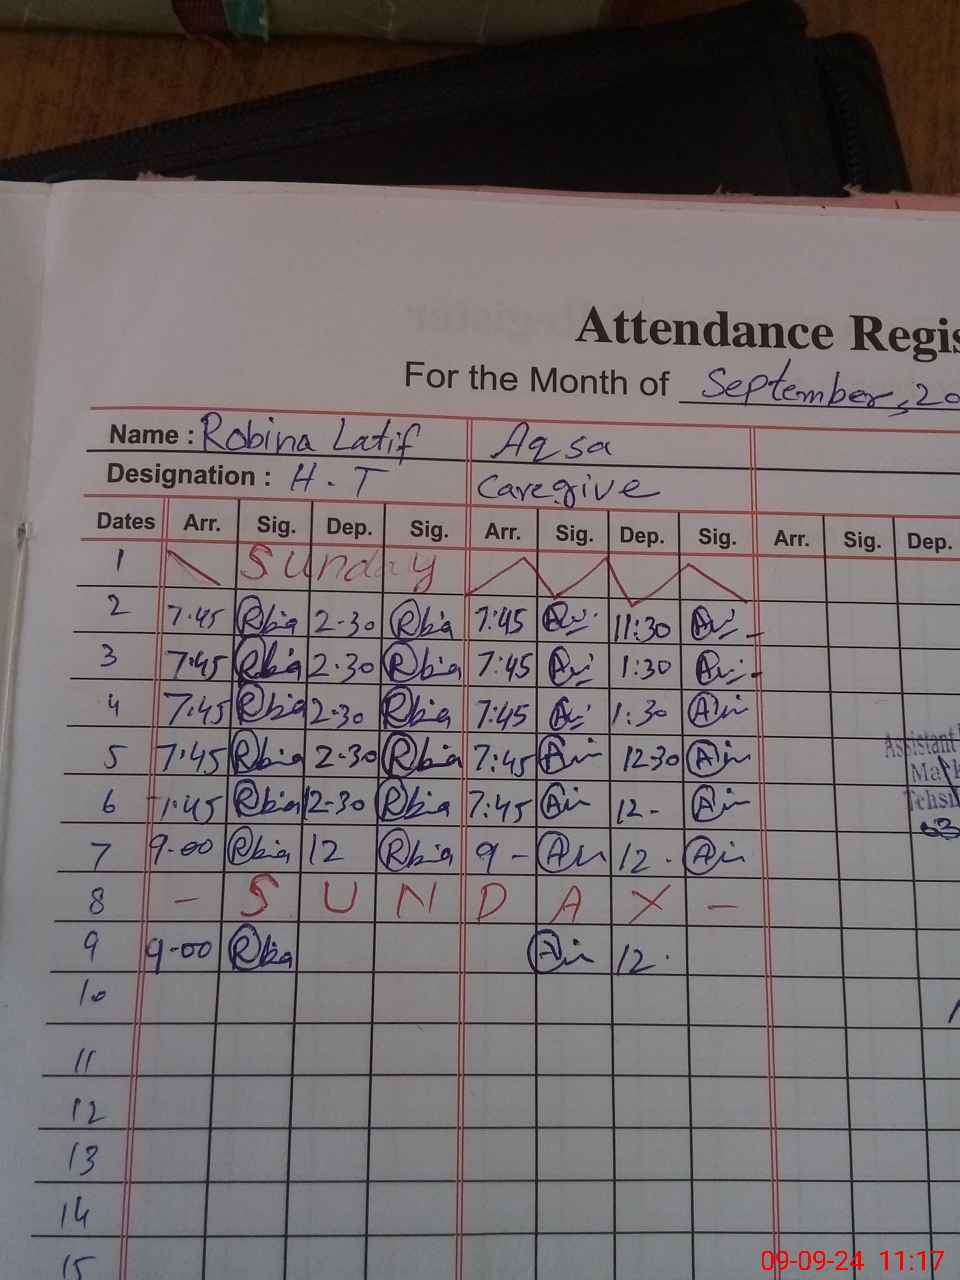 Attendance Regis
For the Month of September, 20
Name : Robina Latif Aqsa
Designation : H.T Caregive
Dates Arr. Sig. Dep. Sig. Arr. Sig. Dep. Sig. Arr. Sig. Dep.
1 Sunday
2 7:45 Rbia 2-30 Rbia 7:45 11:30
3 7:45 Rbia 2-30 Rbia 7:45 1:30
4 7:45 Rbia 2-30 Rbia 7:45 1:30
5 7:45 Rbia 2-30 Rbia 7:45 12-30
Assistant
6 :45 Rbia 12-30 Rbia 7:45 12-
Tehsi
7 9-00 Rbia 12 Rbia 9- 12.
8 - SUNDAY -
9 9-00 Rbia 12.
10
11
12
13
14
15
09-09-24 11:17